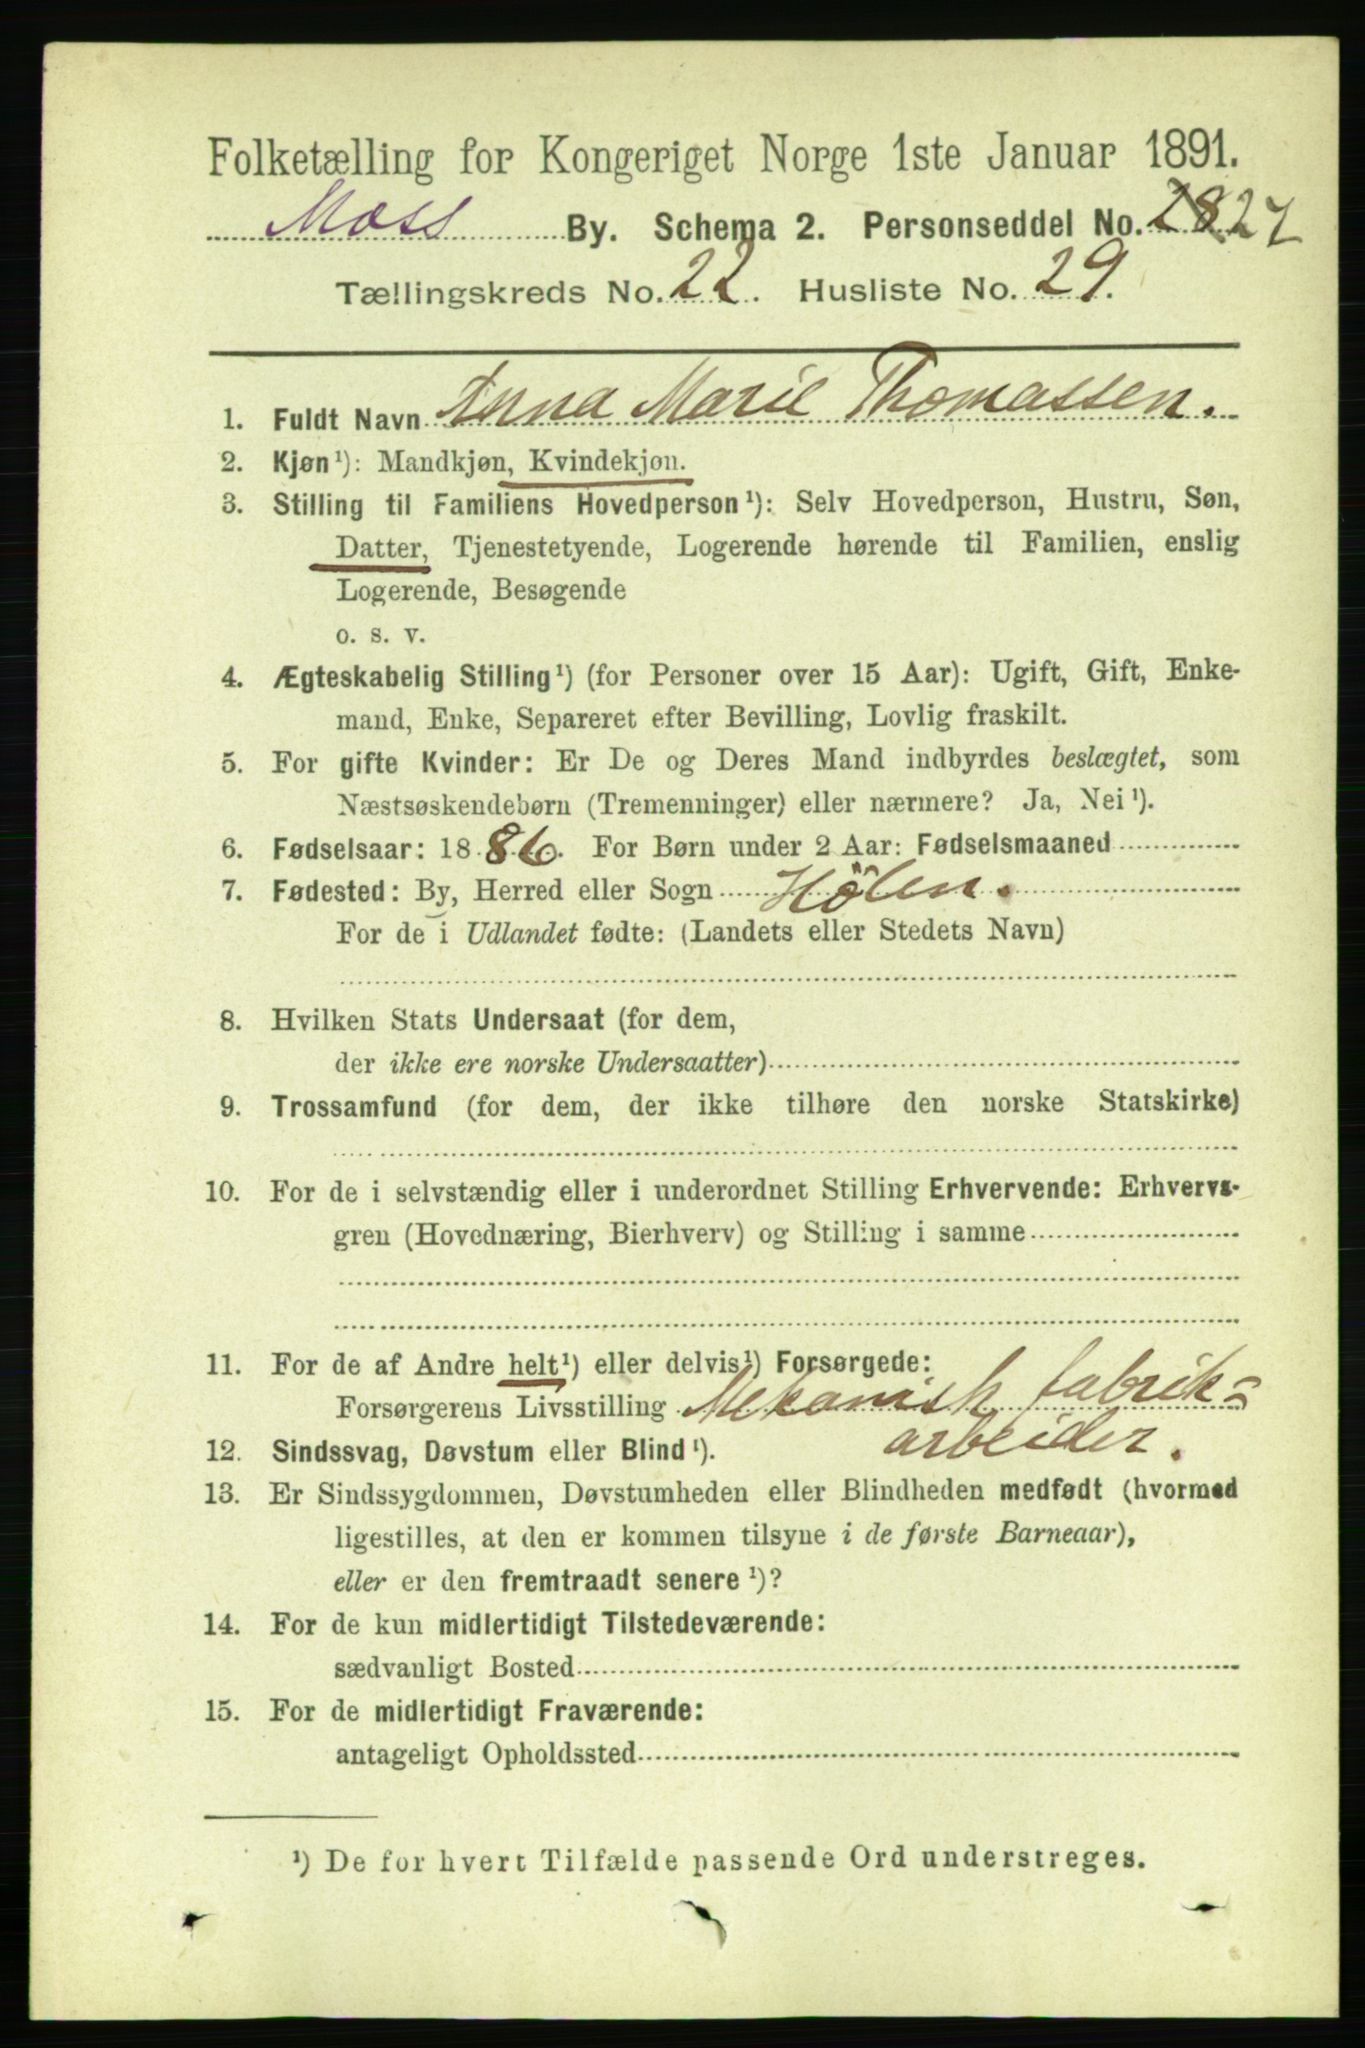 Folketælling for Kongeriget Norge 1ste Januar 1891.
Moss By. Schema 2. Personseddel No. 28 27
Tællingskreds No. 22. Husliste No. 29.
1. Fuldt Navn Anna Marie Thomassen.
2. Kjøn¹): Mandkjøn, Kvindekjøn.
3. Stilling til Familiens Hovedperson¹): Selv Hovedperson, Hustru, Søn,
Datter, Tjenestetyende, Logerende hørende til Familien, enslig
Logerende, Besøgende
o. s. v.
4. Ægteskabelig Stilling¹) (for Personer over 15 Aar): Ugift, Gift, Enke-
mand, Enke, Separeret efter Bevilling, Lovlig fraskilt.
5. For gifte Kvinder: Er De og Deres Mand indbyrdes beslægtet, som
Næstsøskendebørn (Tremenninger) eller nærmere? Ja, Nei¹).
6. Fødselsaar: 1886. For Børn under 2 Aar: Fødselsmaaned
7. Fødested: By, Herred eller Sogn Hölen.
For de i Udlandet fødte: (Landets eller Stedets Navn)
8. Hvilken Stats Undersaat (for dem,
der ikke ere norske Undersaatter)
9. Trossamfund (for dem, der ikke tilhøre den norske Statskirke)
10. For de i selvstændig eller i underordnet Stilling Erhvervende: Erhvervs-
gren (Hovednæring, Bierhverv) og Stilling i samme
11. For de af Andre helt¹) eller delvis¹) Forsørgede:
Forsørgerens Livsstilling Mekanisk fabrik=
arbeider.
12. Sindssvag, Døvstum eller Blind¹).
13. Er Sindssygdommen, Døvstumheden eller Blindheden medfødt (hvormed
ligestilles, at den er kommen tilsyne i de første Barneaar),
eller er den fremtraadt senere¹)?
14. For de kun midlertidigt Tilstedeværende:
sædvanligt Bosted
15. For de midlertidigt Fraværende:
antageligt Opholdssted
¹) De for hvert Tilfælde passende Ord understreges.